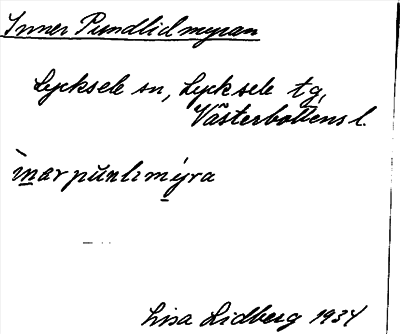 Inner Pundlidmyran
Lycksele sn, Lycksele tg,
Västerbottens l.
ìnar pŭnlımýra
Lisa Lidberg 1934